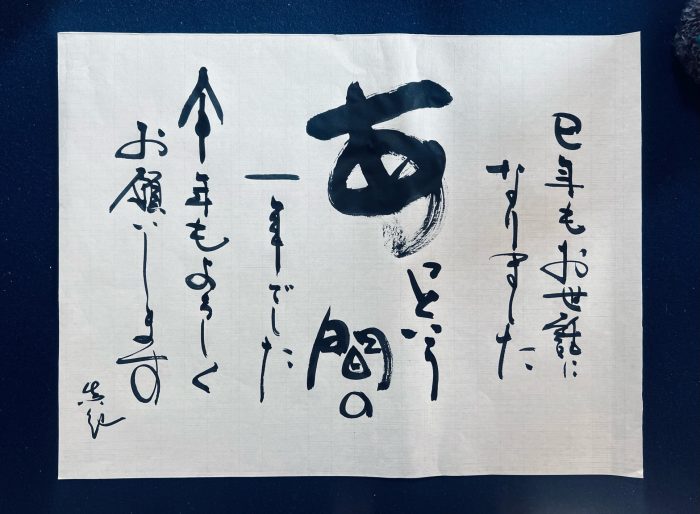 巳年もお世話に
なりました
あっという
間の
一年でした
今年もよろしく
お願いします